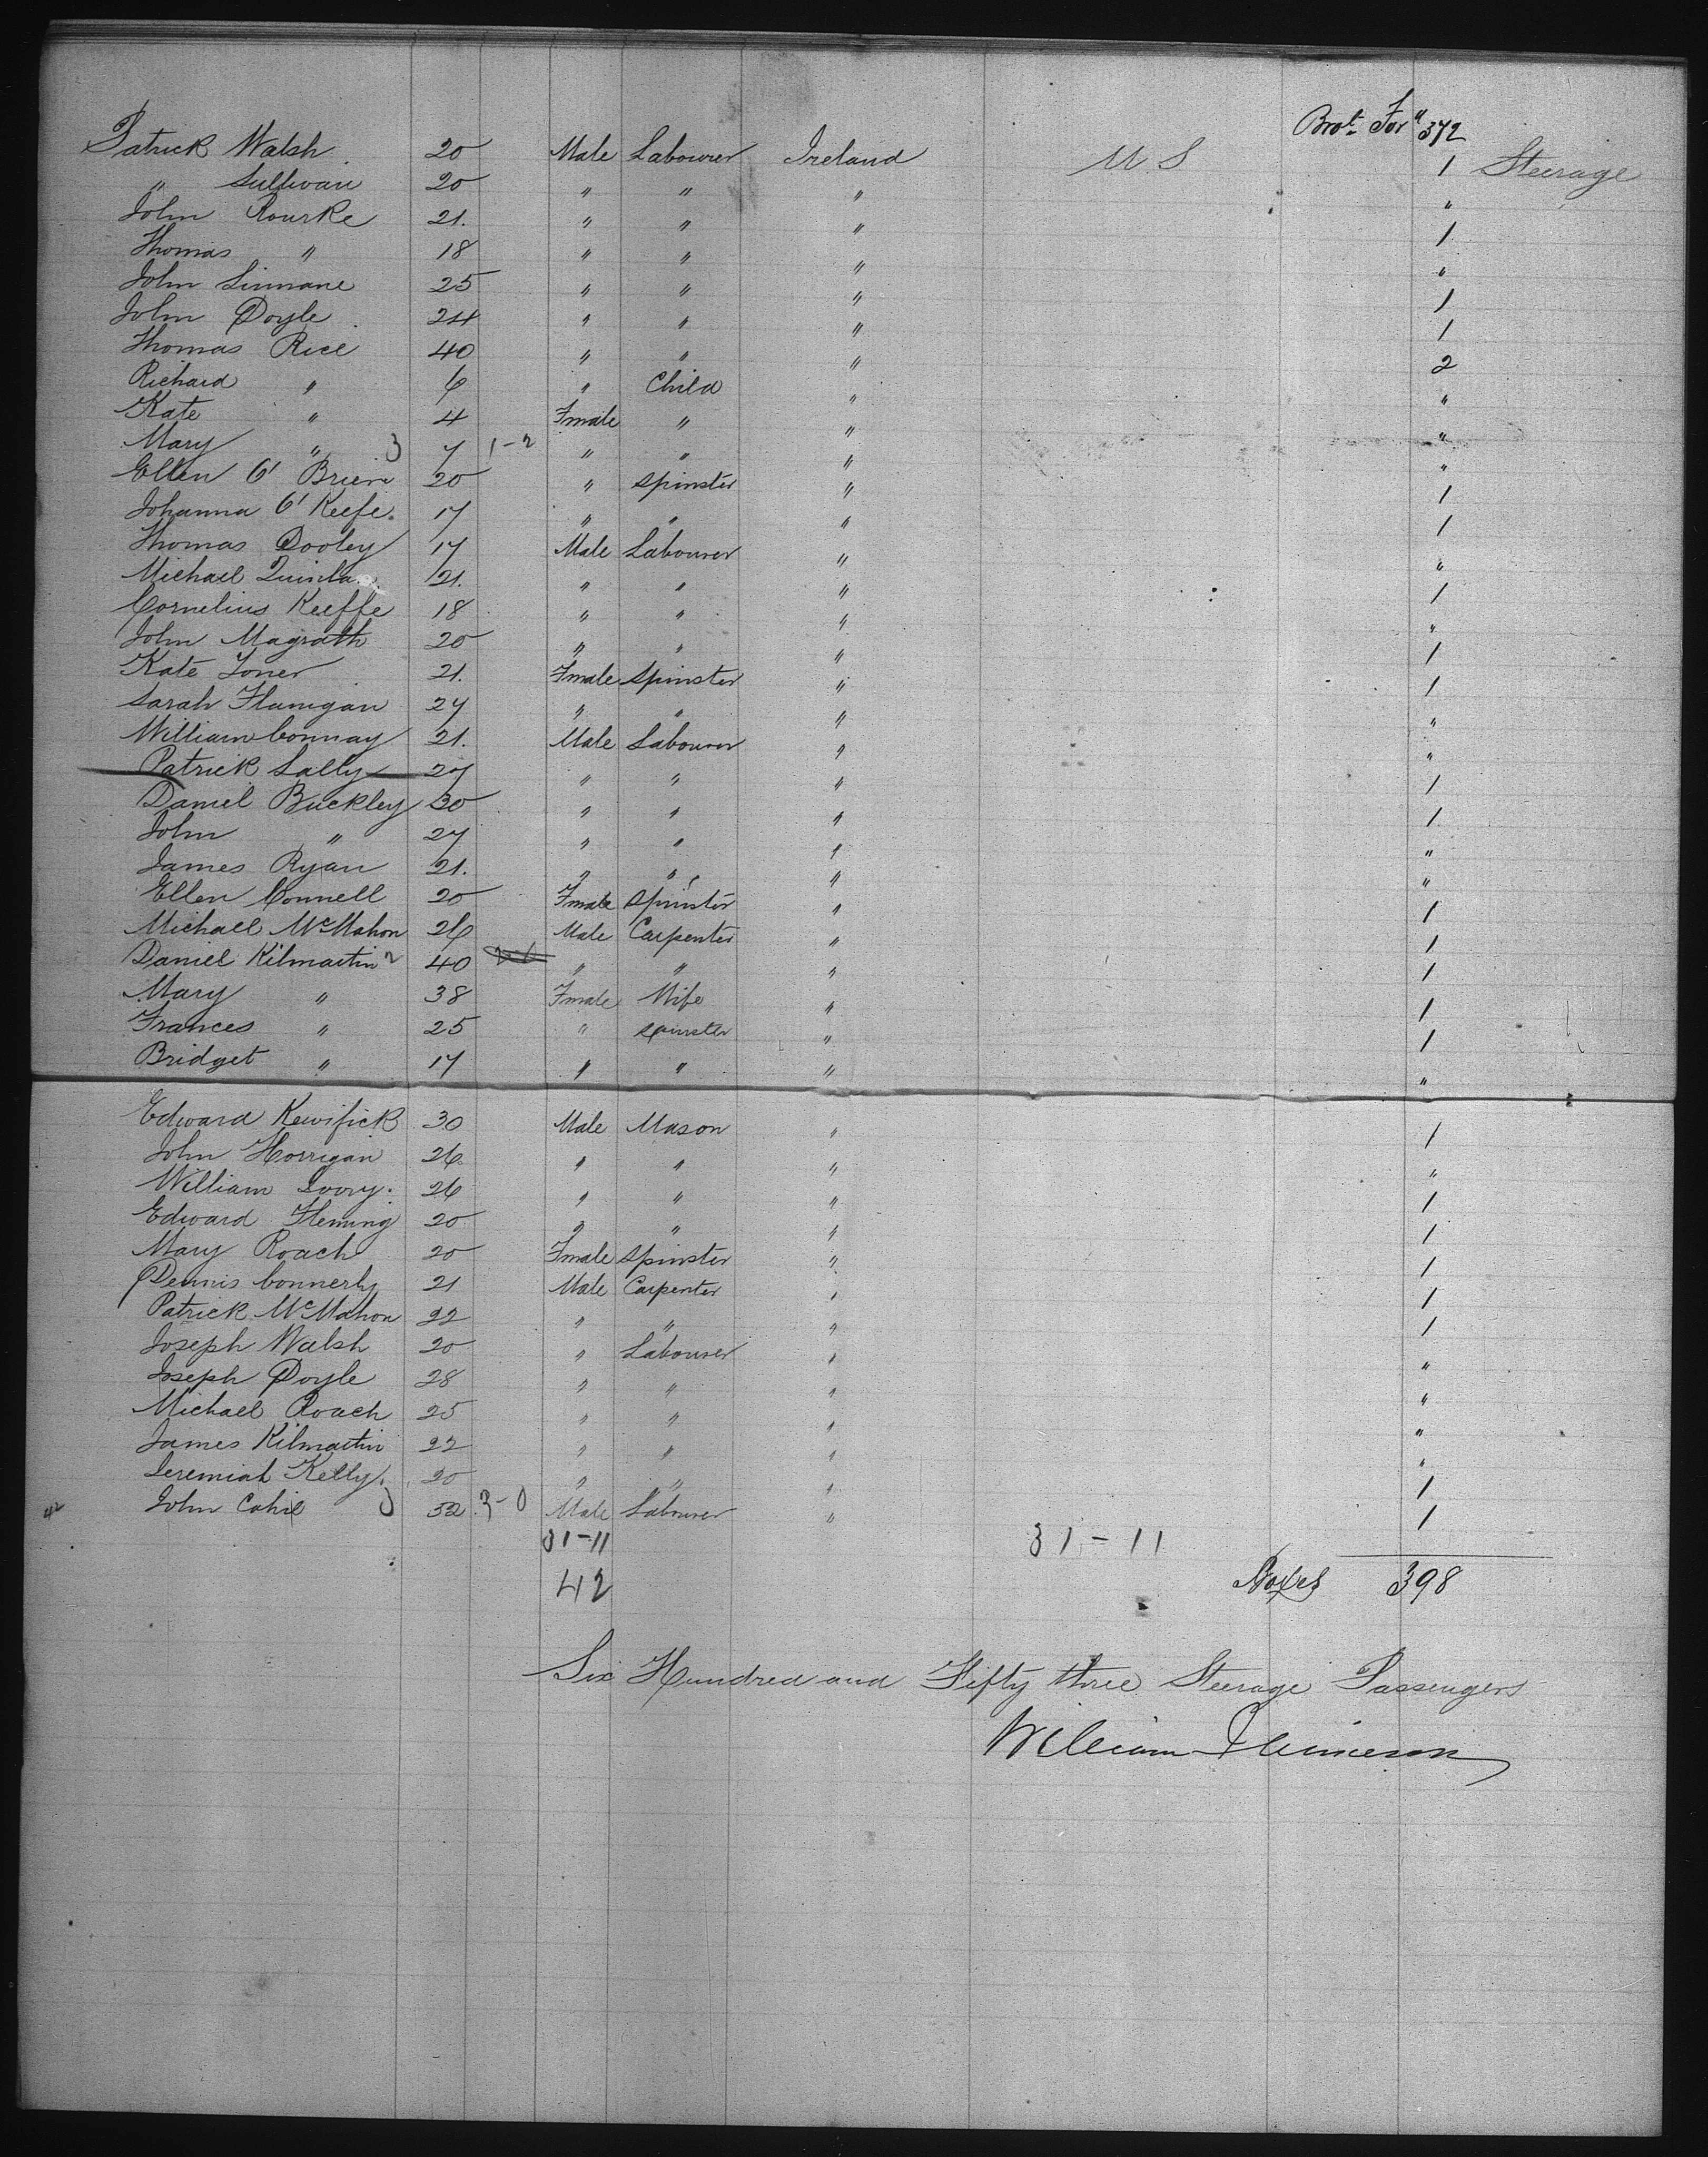 Brot. For'd 372
Patrick Walsh 20 Male Labourer Ireland U S 1 Steerage
" Sullivan 20 " " " "
John Rourke 21. " " " 1
Thomas " 18 " " " "
John Linnane 25 " " " 1
John Doyle 24 " " " 1
Thomas Rice 40 " " " 2
Richard " 6 " Child " "
Kate " 4 Fmale " " "
Mary " 3 7 1-2 " " " "
Ellen O' Brien 20 " Spinster " 1
Johanna O' Keefe. 17 " " " 1
Thomas Dooley 17 Male Labourer " "
Michael Quinla 21. " " " 1
Cornelius Keeffe 18 " " " "
John Magrath 20 " " " 1
Kate Toner 21. Fmale Spinster " 1
Sarah Flanigan 27 " " " "
William Connay 21. Male Labourer " "
Patrick Lally 27 " " " 1
Daniel Buckley 30 " " " 1
John " 27 " " " "
James Ryan 21. " " " "
Ellen Connell 20 Fmale Spinster " 1
Michael McMahon 26 Male Carpenter " 1
Daniel Kilmartin 2 40 " " " 1
Mary " 38 Fmale Wife " 1
Frances " 25 " Spinster " 1
Bridget " 17 " " " "
Edward 30 Male Mason " 1
John Horrigan 26 " " " "
William Ivory. 26 " " " 1
Edward Fleming 20 " " " 1
Mary Roach 20 Fmale Spinster " 1
Dennis Connerly 21 Male Carpenter " 1
Patrick McMahon 22 " " " 1
Joseph Walsh 20 " Labourer " "
Joseph Doyle 28 " " " "
Michael Roach 25 " " " "
James Kilmartin 22 " " " "
Jeremiah Kelly. 20 " " " 1
42 John Cahil 3 52 3-0 Male Labourer " 1
31-11 31-11
42 Boxes 398
Six Hundred and Fifty three Steerage Passengers
William